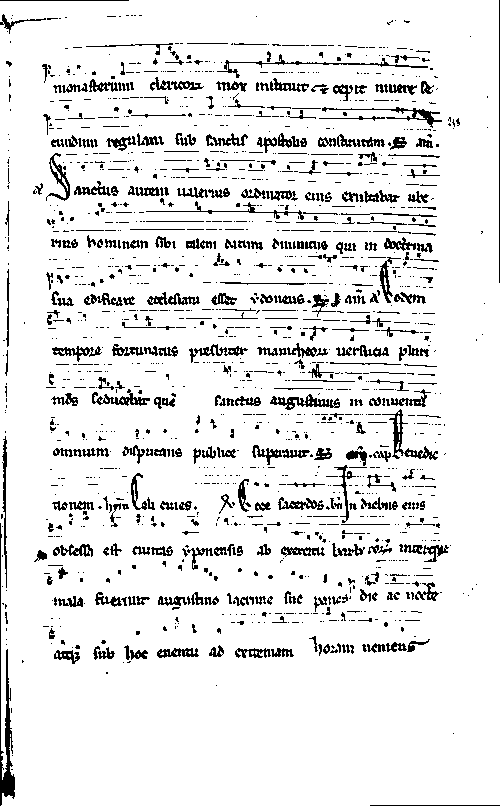 monasterium clericorum mox instituit et cepit vivere se
cundum regulam sub sanctis apostolis constitutam. am.
Sanctus autem valerius ordinator eius exultabat ube
rius hominem sibi talem datum divinitus qui in doctrina
sua edificare ecclesiam esset ydoneus. am Eodem
tempore fortunatus presbiter manicheorum versucia pluri
mos seducebat quem sanctus augustinus in conventu
omnium disputans publice superavit. cap Benedic
tionem. hym Celi cives. Ecce sacerdos. In diebus eius
obsessa est civitas yponensis ab exercitu
mala fuerunt augustino lacrime sue panes die ac nocte
atque sub hoc eventu ad extremam horam veniens